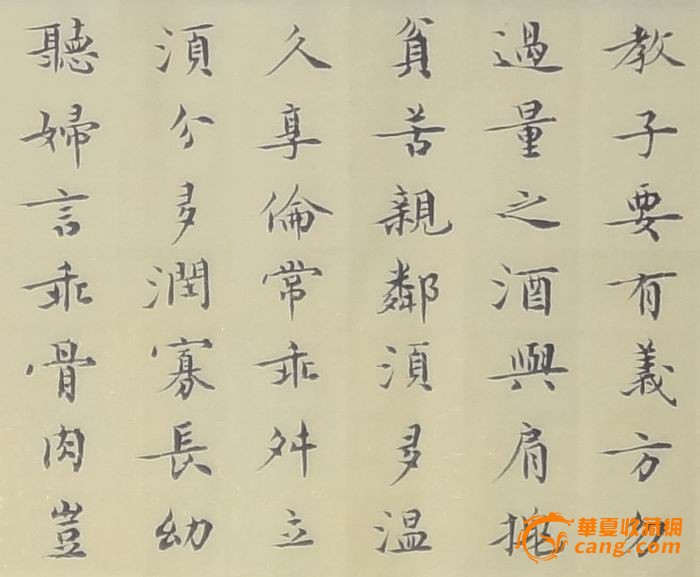 教子要有義方勿
過量之酒與肩挑
貧苦親鄰須多溫
久享倫常乖舛立
須分多潤寡長幼
聽婦言乖骨肉豈
華夏收藏網
cang.com